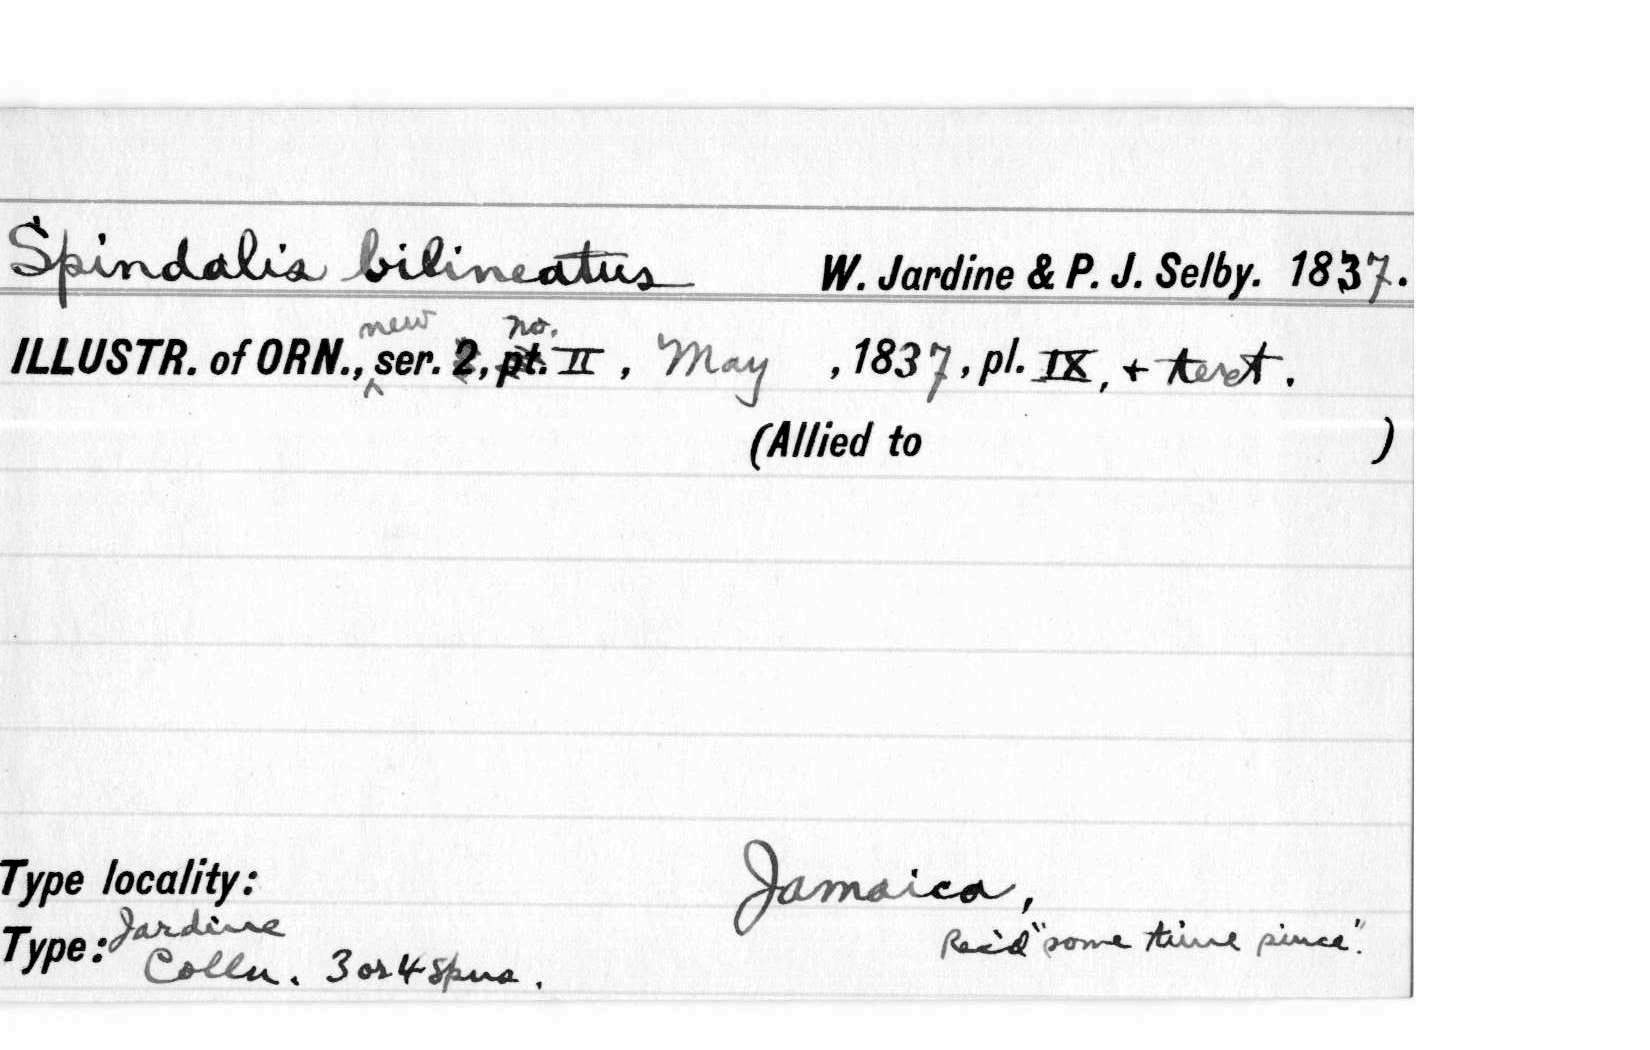 Spindalis bilineatus W. Jardine & P. J. Selby. 1837.
new no.
ILLUSTR. of ORN., ser. 2, pt. II, May, 1837, pl. IX, + text.
(Allied to )
Type locality: Jamaica,
Type: Jardine Rec'd "some time since".
Colln. 3 or 4 spns.